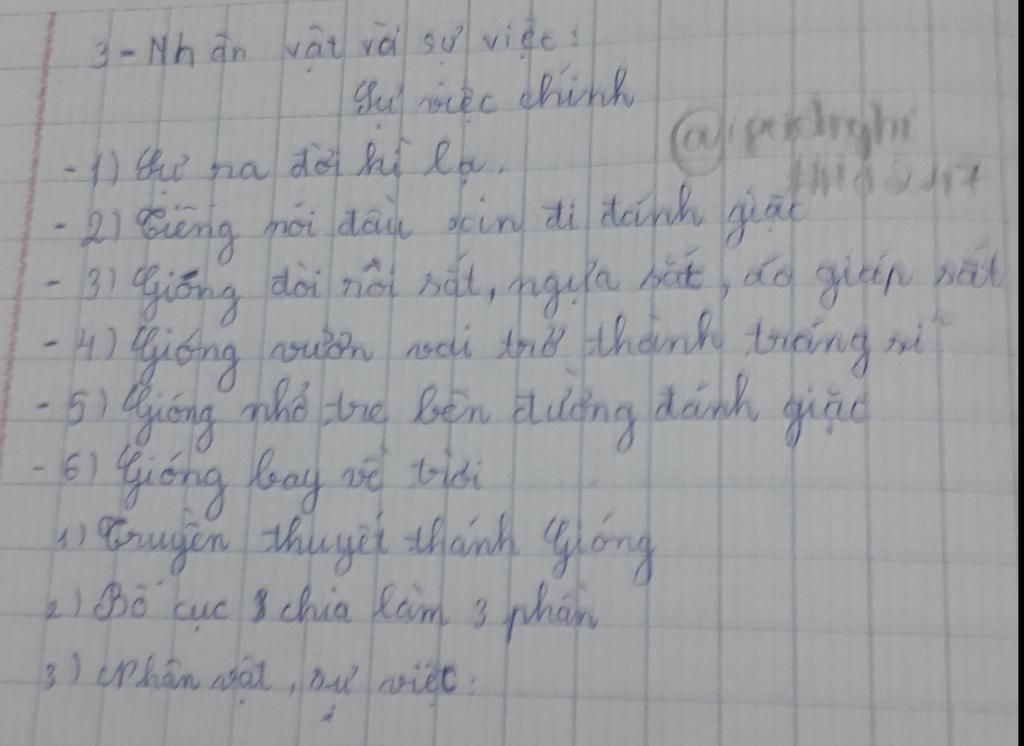 3-Nhân vật và sự việc:
Sự việc chính
-1) Sự ra đời kì lạ.
-2) Tiếng nói đầu xin đi đánh giặc
-3) Gióng đòi nồi sắt, ngựa sắt, áo giáp sắt
-4) Gióng vươn vai trở thành tráng sĩ
-5) Gióng nhổ tre bên đường đánh giặc
-6) Gióng bay về trời
1) Truyền thuyết thánh Gióng
2) Bố cục chia làm 3 phần
3) Nhân vật, sự việc: